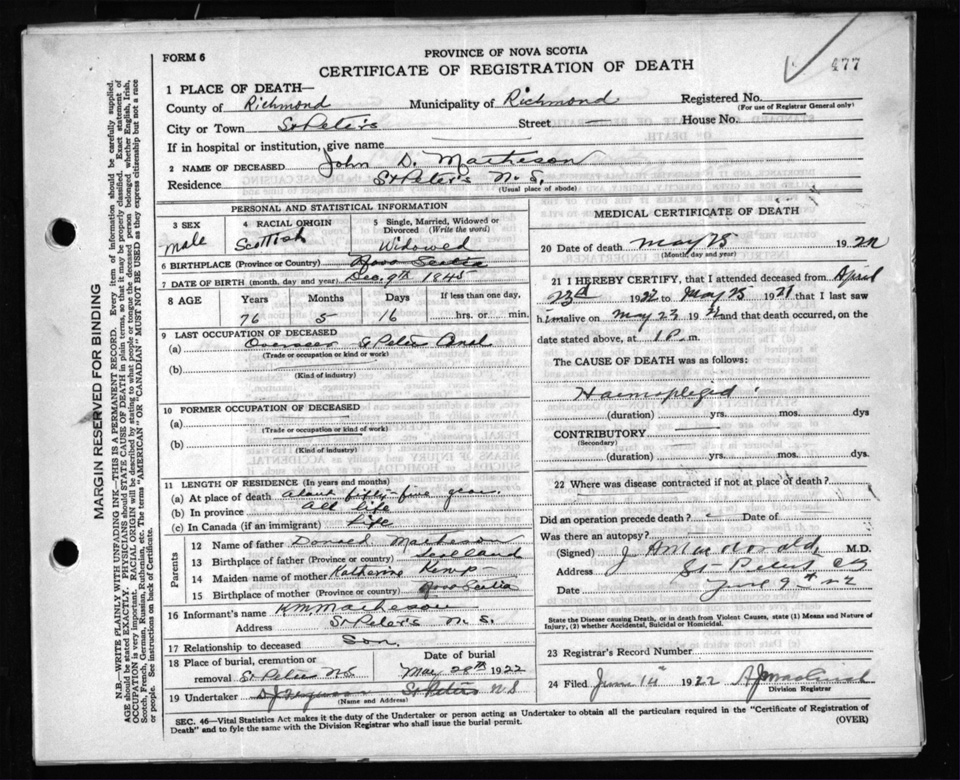 FORM 6
PROVINCE OF NOVA SCOTIA
477
CERTIFICATE OF REGISTRATION OF DEATH
1 PLACE OF DEATH—
County of Richmond Municipality of Richmond Registered No.
(For use of Registrar General only)
City or Town St Peter's Street — House No.
If in hospital or institution, give name
2 NAME OF DECEASED John D. Matheson
Residence St Peter's N.S.
(Usual place of abode)
PERSONAL AND STATISTICAL INFORMATION
3 SEX 4 RACIAL ORIGIN 5 Single, Married, Widowed or Divorced (Write the word)
Male Scottish Widowed
6 BIRTHPLACE (Province or Country) Nova Scotia
7 DATE OF BIRTH (month, day and year) Dec. 9th 1845
8 AGE Years Months Days If less than one day,
76 5 16 hrs. or min.
9 LAST OCCUPATION OF DECEASED
(a) Overseer St Peters Canal
(Trade or occupation or kind or work)
(b)
(Kind of industry)
10 FORMER OCCUPATION OF DECEASED
(a)
(Trade or occupation or kind of work)
(b)
(Kind of industry)
11 LENGTH OF RESIDENCE (In years and months)
(a) At place of death about fifty-five years
(b) In province all life
(c) In Canada (if an immigrant) Life
Parents
12 Name of father Donald Matheson
13 Birthplace of father (Province or country) Scotland
14 Maiden name of mother Katherine Kemp
15 Birthplace of mother (Province or country) Nova Scotia
16 Informant's name K M Matheson
Address St Peter's N.S.
17 Relationship to deceased Son
18 Place of burial, cremation or removal St Peters NS Date of burial May 28th 1922
19 Undertaker D J Ferguson St Peters N S
(Name and Address)
MEDICAL CERTIFICATE OF DEATH
20 Date of death May 25 1922
(Month, day and year)
21 I HEREBY CERTIFY, that I attended deceased from April
23rd 1922 to May 25 1921 that I last saw
him alive on May 23 1922 and that death occurred, on
date stated above, at 1 P. m.
The CAUSE OF DEATH was as follows:
Haemiplegia
(duration) yrs. mos. dys
CONTRIBUTORY
(Secondary)
(duration) yrs. mos. dys.
22 Where was disease contracted if not at place of death?
Did an operation precede death? Date of
Was there an autopsy?
(Signed) M.D.
Address St Peters
Date June 9th 22
State the Disease causing Death, or in death from Violent Causes, state (1) Means and Nature of
Injury, (2) whether Accidental, Suicidal or Homicidal.
23 Registrar's Record Number
24 Filed June 14 1922
Division Registrar
SEC. 46—Vital Statistics Act makes it the duty of the Undertaker or person acting as Undertaker to obtain all the particulars required in the "Certificate of Registration of
Death" and to fyle the same with the Division Registrar who shall issue the burial permit.
(OVER)
MARGIN RESERVED FOR BINDING
N.B.—WRITE PLAINLY WITH UNFADING INK—THIS IS A PERMANENT RECORD. Every item of information should be carefully supplied.
AGE should be stated EXACTLY. PHYSICIANS should STATE CAUSE OF DEATH in plain terms, so that it may be properly classified. Exact statement of
OCCUPATION is very important. RACIAL ORIGIN will be described by stating to what people or tongue the deceased person belonged whether English, Irish,
Scotch, French, German, Russian, Ruthenian, etc. The terms "AMERICAN" OR "CANADIAN" MUST NOT BE USED as they express citizenship but not a race
or people. See instructions on back of Certificate.